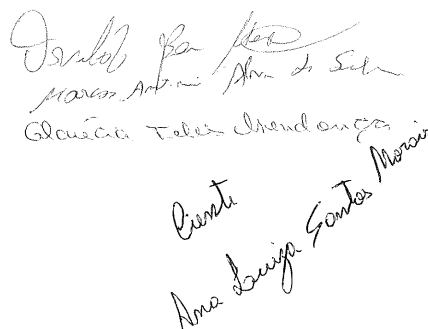 Marcos Antonio Alves da Silva
Glaucia Teles Mendonça
Ciente
Ana Luiza Santos Morais